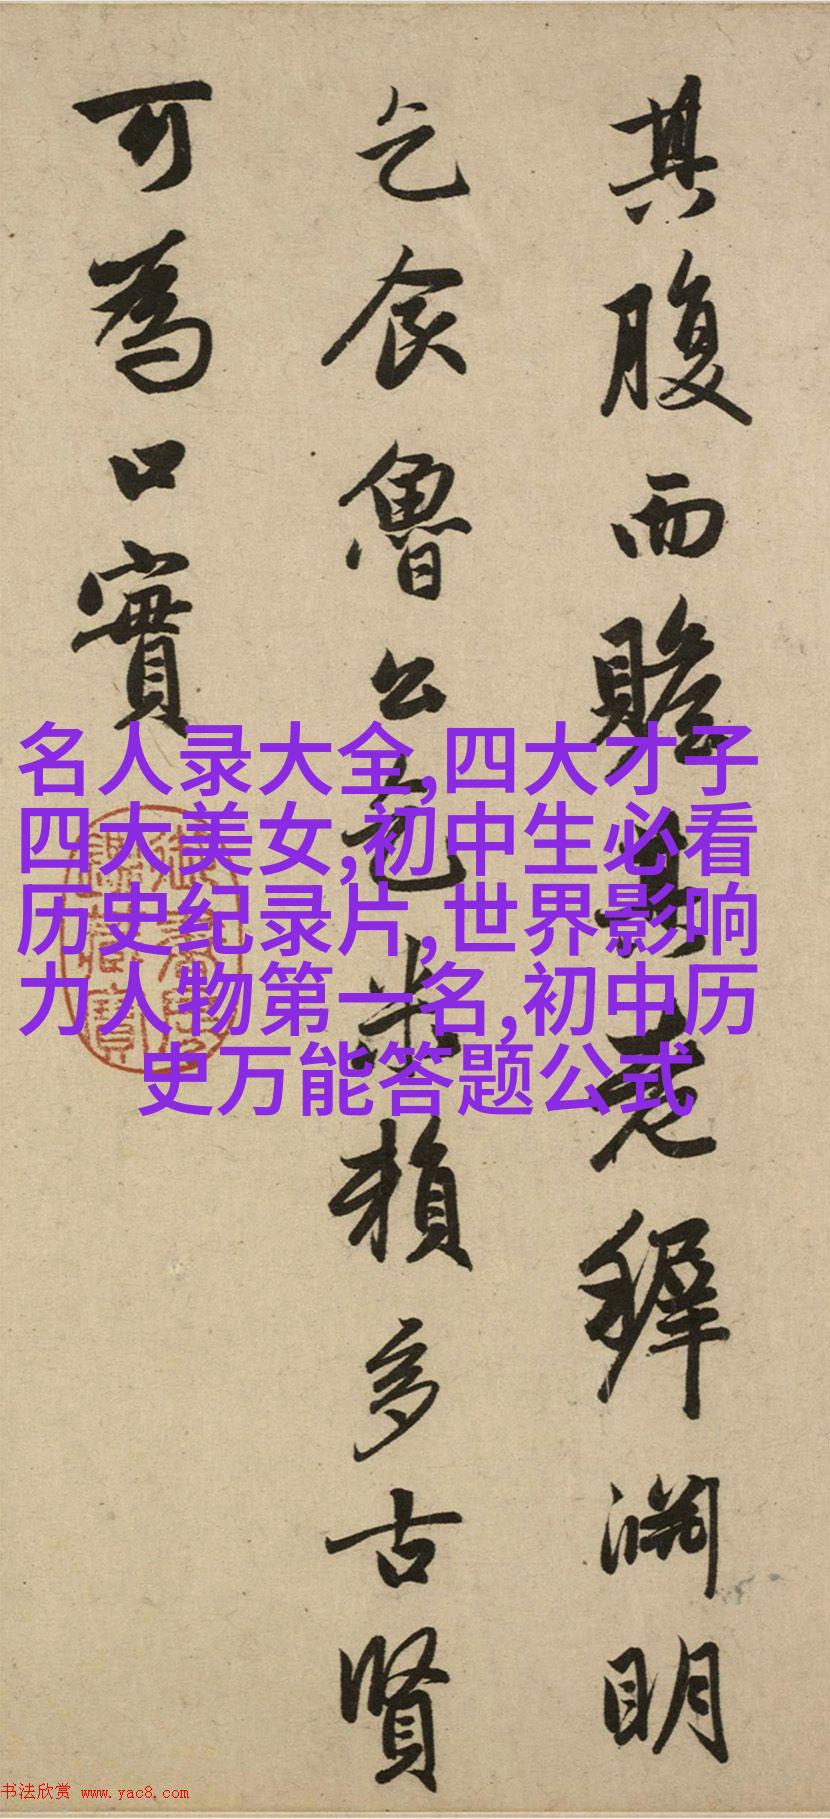 其腹而贍其老稺淵明
乞食魯公乞米賴多古賢
可為口實
名人录大全,四大才子
四大美女,初中生必看
历史纪录片,世界影响
力人物第一名,初中历
史万能答题公式
书法欣赏 www.yac8.com